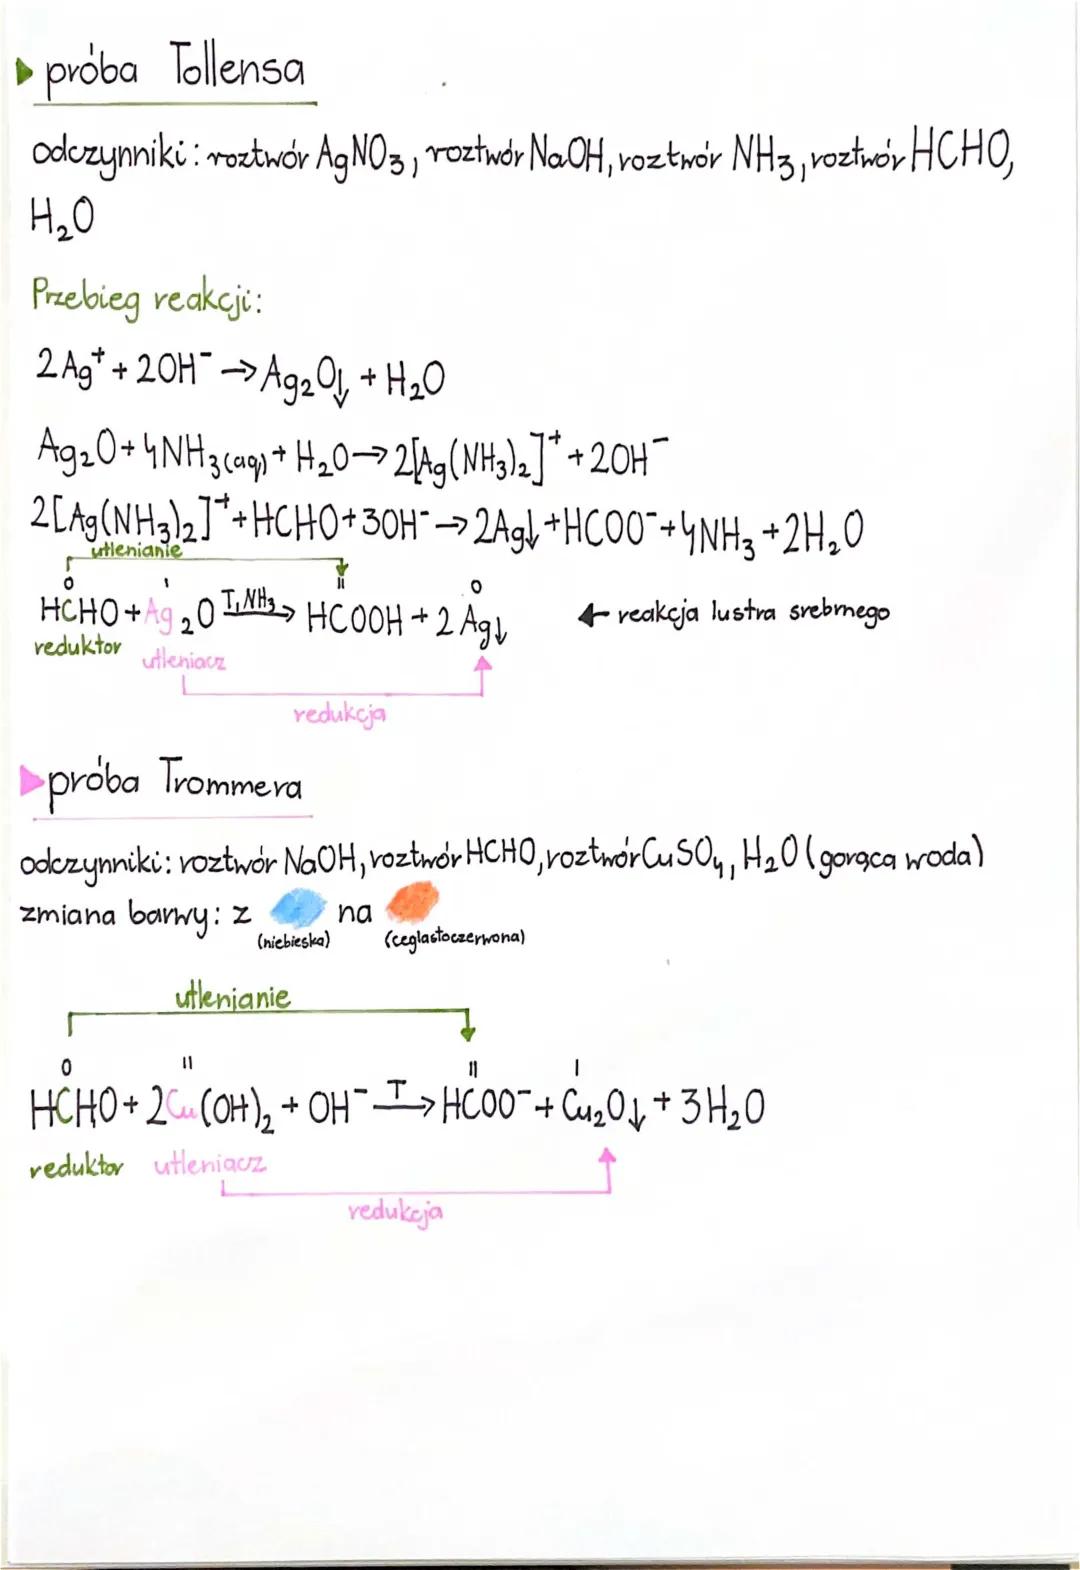 próba Tollensa
odczynniki: roztwór AgNO₃, roztwór NaOH, roztwór NH₃, roztwór HCHO,
H₂O
Przebieg reakcji:
2Ag⁺ + 2OH⁻ → Ag₂O↓ + H₂O
Ag₂O + 4NH₃(aq) + H₂O → 2[Ag(NH₃)₂]⁺ + 2OH⁻
2[Ag(NH₃)₂]⁺ + HCHO + 3OH⁻ → 2Ag↓ + HCOO⁻ + 4NH₃ + 2H₂O
utlenianie
0 I II 0
HCHO + Ag₂O T, NH₃→ HCOOH + 2Ag↓ ← reakcja lustra srebrnego
reduktor utleniacz
redukcja
próba Trommera
odczynniki: roztwór NaOH, roztwór HCHO, roztwór CuSO₄, H₂O (gorąca woda)
zmiana barwy: z na
(niebieska) (ceglastoczerwona)
utlenianie
0 II II I
HCHO + 2Cu(OH)₂ + OH⁻ T→ HCOO⁻ + Cu₂O↓ + 3H₂O
reduktor utleniacz
redukcja